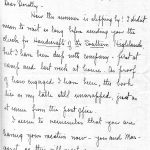 Dear Dorothy
Now the summer is slipping by! I didn't
mean to wait so long before sending your
check for Handicrafts of the Southern Highlands
but I have been deep into company - first at
camp and last week at home. The proof
I have enjoyed I have been, this book
lies on my table still unwrapped, just as
it came from the post office
I seem to remember that you are
having your vacation now - you and